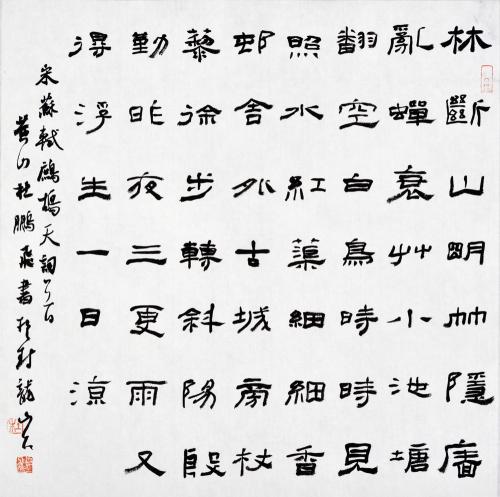 林斷山明竹隱牆
亂蟬衰艸小池塘
翻空白鳥時時見
照水紅蕖細細香
邨舍外古城旁杖
藜徐步轉斜陽殷
勤昨夜三更雨又
得浮生一日涼
宋蘇軾鷓鴣天詞一首
黄山杜鵬飛書於封龍山